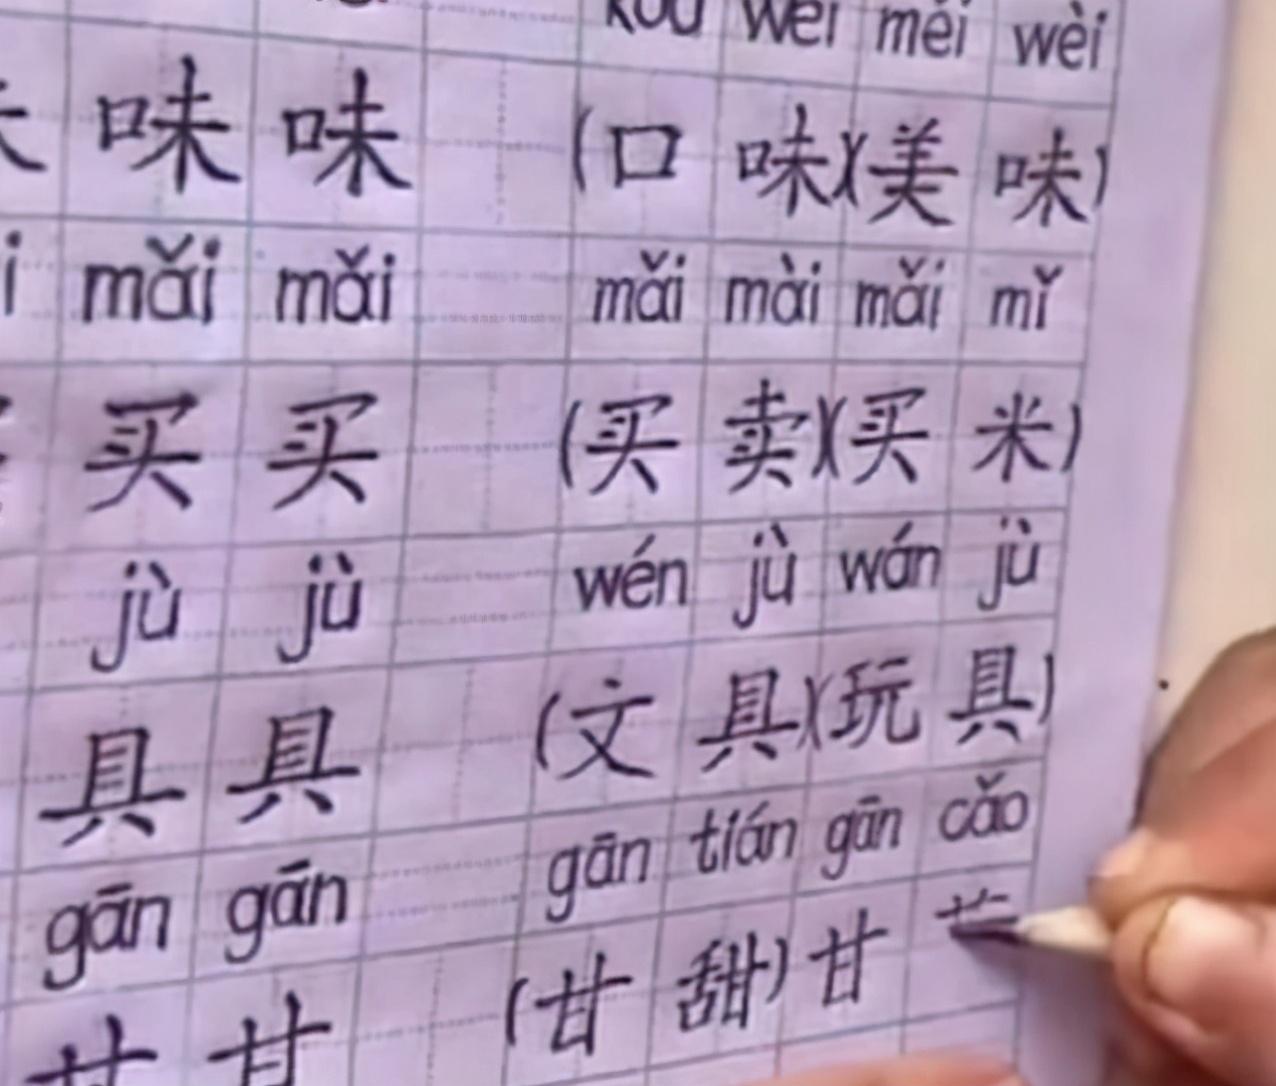 kǒu wèi měi wèi
味 味 (口 味)(美 味)
mǎi mǎi mǎi mài mǎi mǐ
买 买 (买 卖)(买 米)
jù jù wén jù wán jù
具 具 (文 具)(玩 具)
gān gān gān tián gān cǎo
甘 甘 (甘 甜) 甘